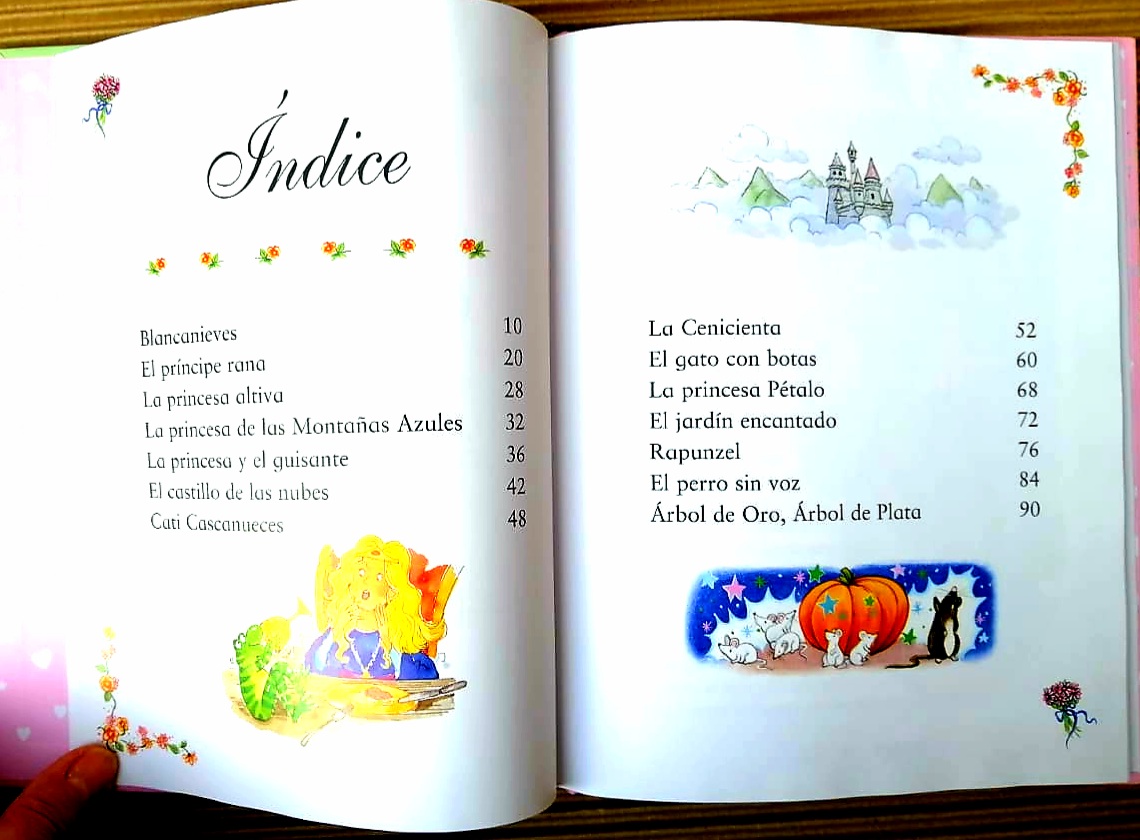 Índice
Blancanieves 10
El príncipe rana 20
La princesa altiva 28
La princesa de las Montañas Azules 32
La princesa y el guisante 36
El castillo de las nubes 42
Cati Cascanueces 48
La Cenicienta 52
El gato con botas 60
La princesa Pétalo 68
El jardín encantado 72
Rapunzel 76
El perro sin voz 84
Árbol de Oro, Árbol de Plata 90